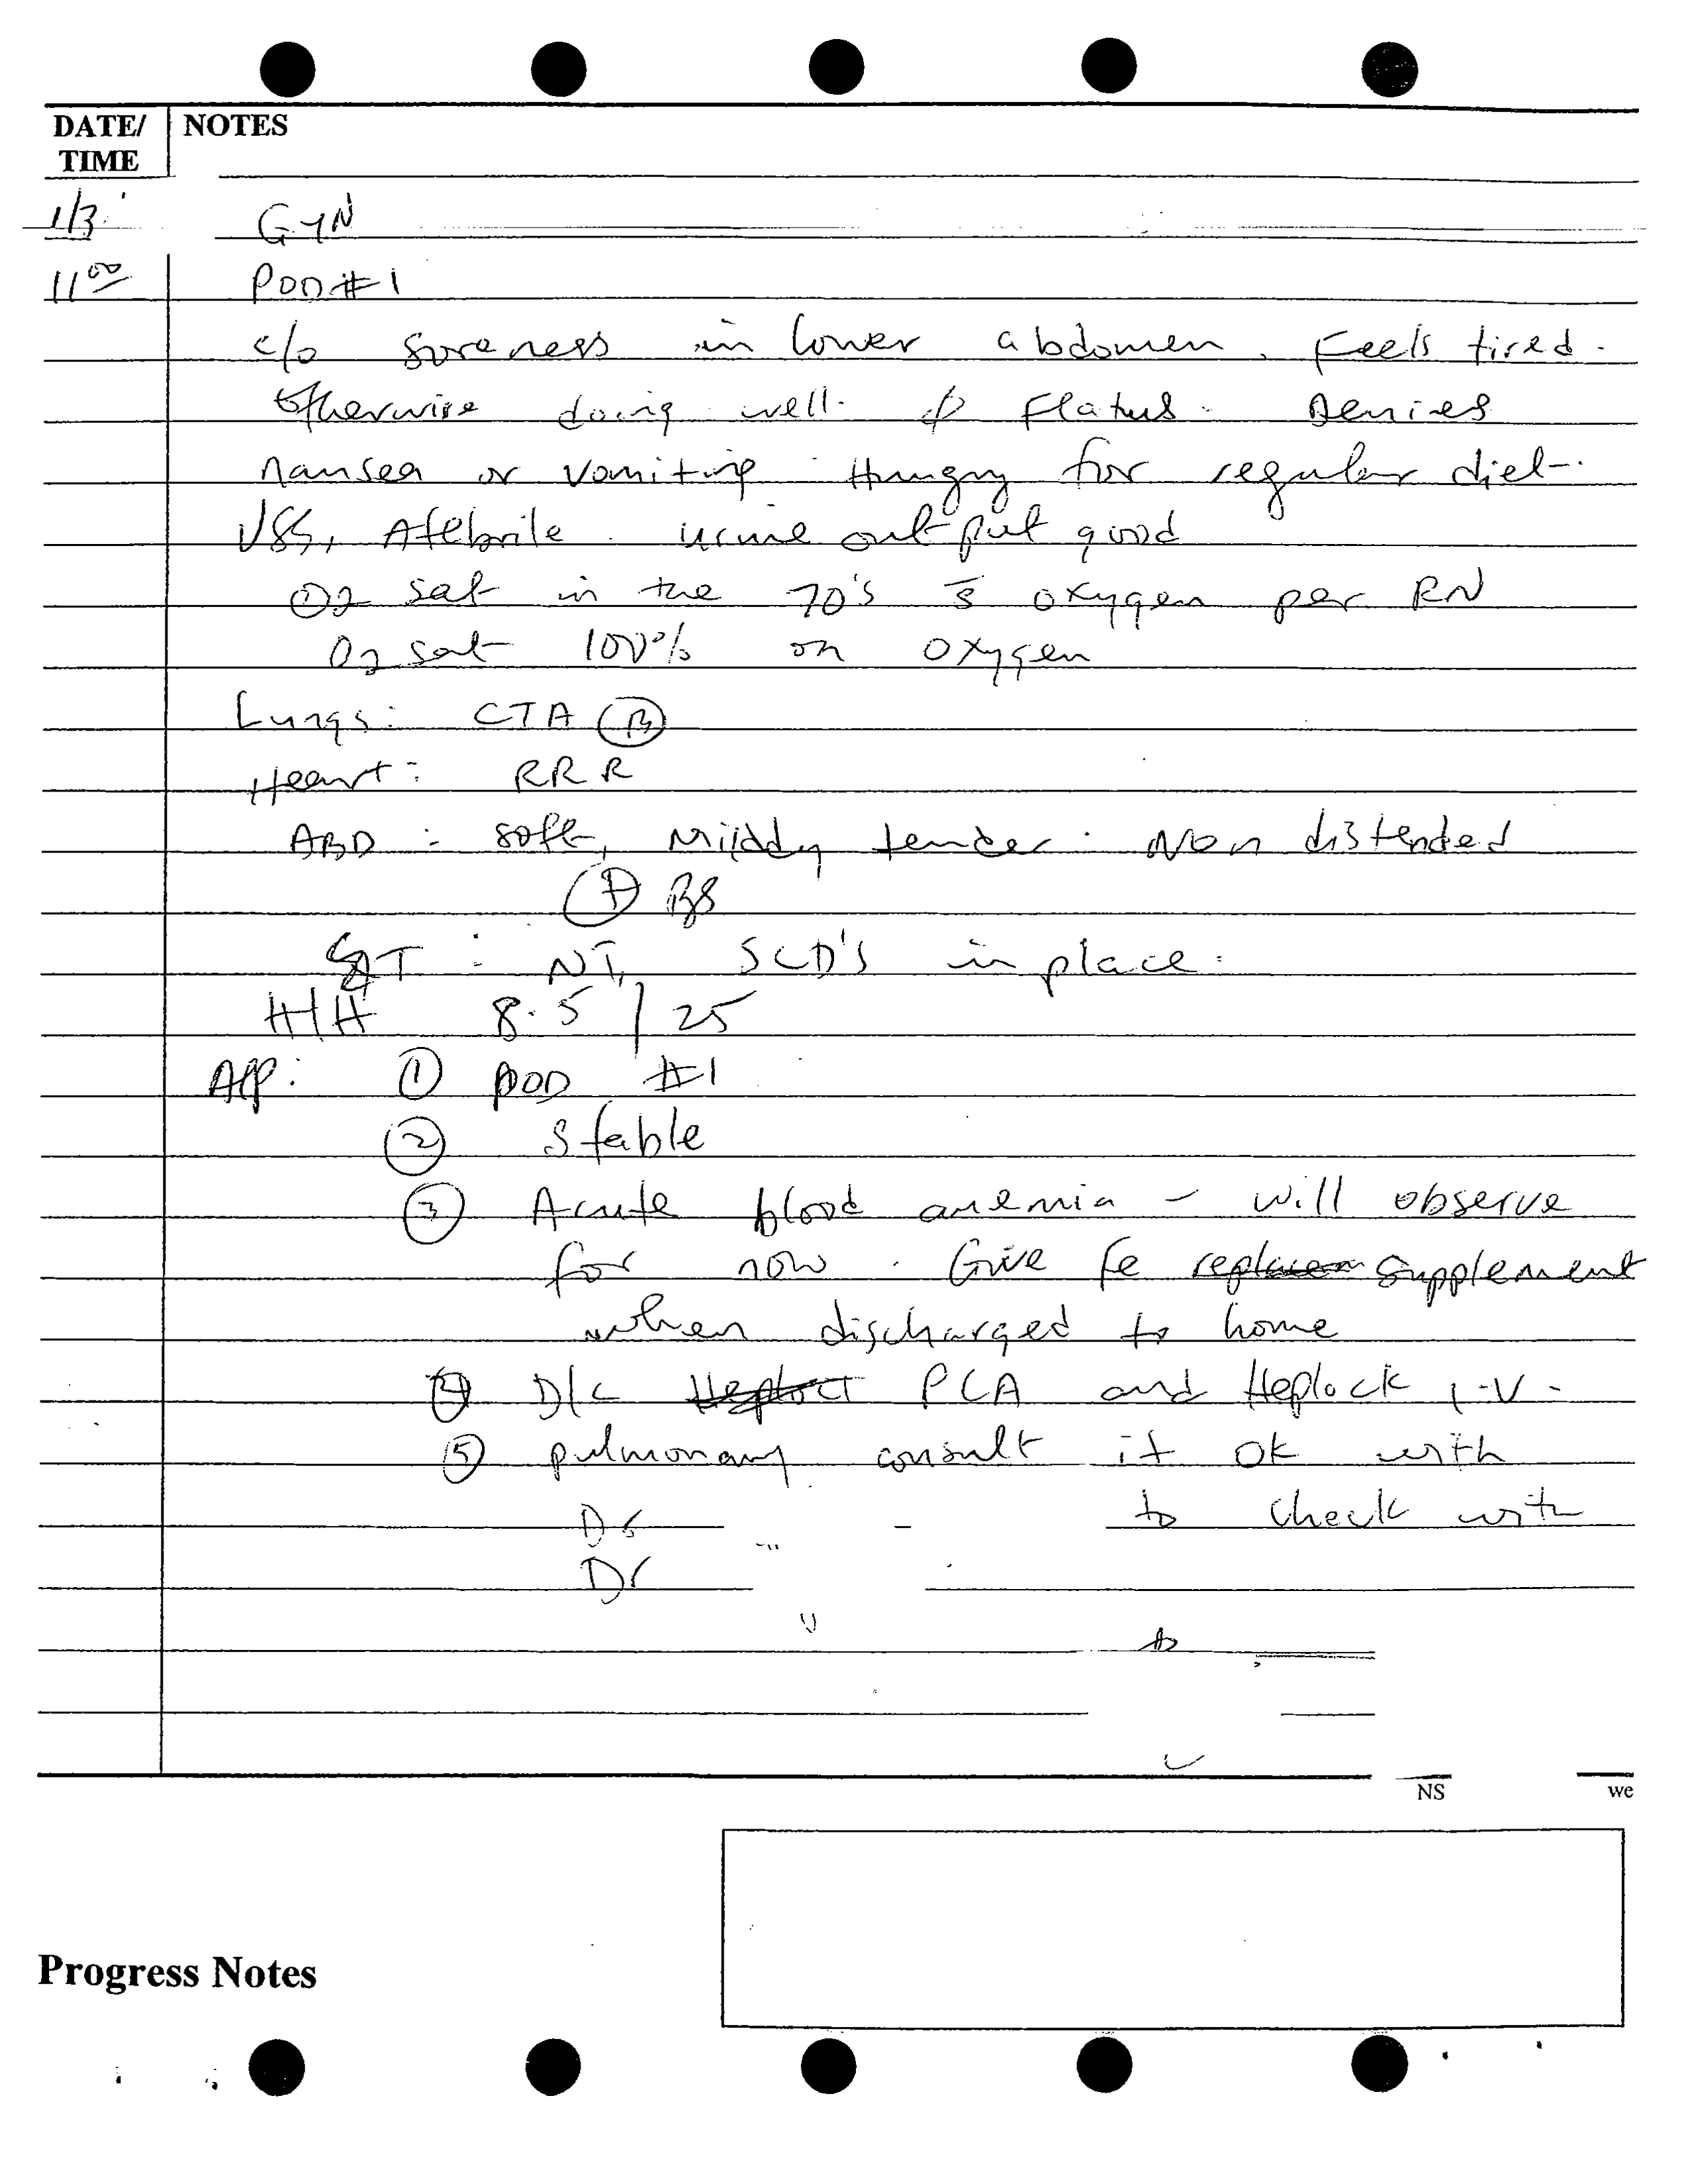 DATE/ NOTES
TIME
1/3 GYN
11 00 POD#1
c/o soreness in lower abdomen. Feels tired.
Otherwise doing well. Flatus. Denies
nausea or vomiting. Hungry for regular diet.
VSS, Afebrile. urine output good
O2 sat in the 70's s̄ oxygen per RN
O2 sat 100% on oxygen
Lungs: CTA Ⓑ
Heart: RRR
ABD: soft, mildly tender. Non distended
⊕ BS
NT, SCD's in place.
H/H 8.5 / 25
A/P: ① POD #1
② Stable
③ Acute blood anemia - will observe
for now. Give Fe supplement
when discharged to home
④ D/C PCA and Heplock I.V.
⑤ pulmonary consult if ok with
Dr to check with
Dr
NS we
Progress Notes